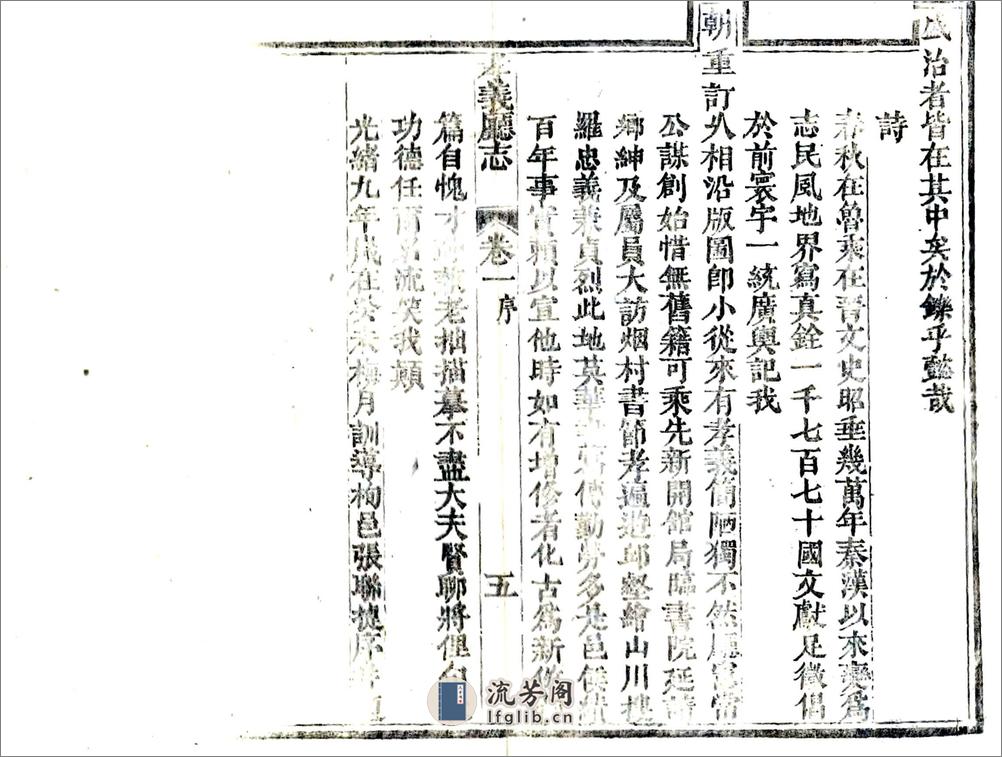 治者皆在其中矣於鑠乎懿哉
詩
春秋在魯乘在晋文史昭垂幾萬年秦漢以來變爲
志民風地界寫真銓一千七百七十國文獻足徵倡
於前寰宇一統廣輿記我
朝重訂久相沿版圖即小從來有孝義簡陋獨不然廳
公謀創始惜無舊籍可乘先新開館局臨書院延請
鄉紳及屬員大訪烟村書節孝遍遊邱壑繪山川搜
羅忠義兼貞烈此地英華勤勞多是邑侯
百年事實賴以宣他時如有增修者化古爲新
孝義廳志
卷一
序
五
篇自愧才老拙描摹不盡大夫賢聊將俚句
功德任而名流笑我顛
光緒九年歲在癸未梅月訓導栒邑張聯捷序
流芳阁
lfglib.cn